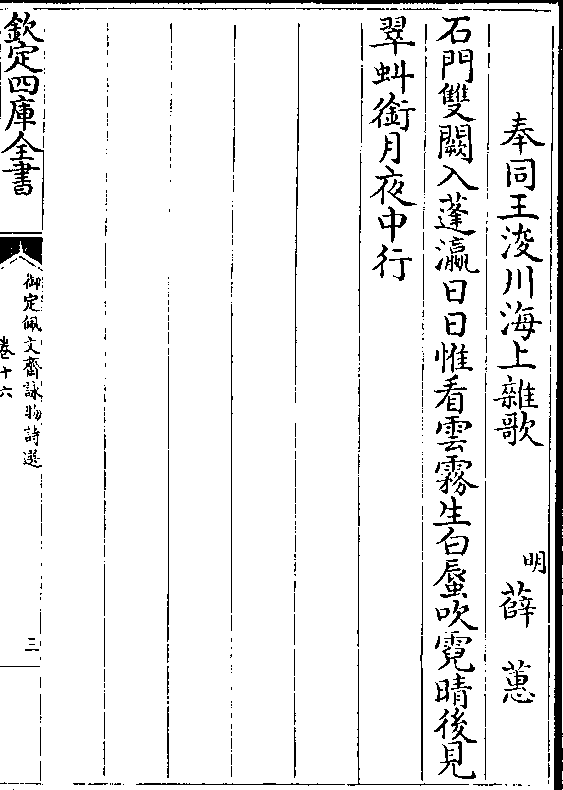 奉同王浚川海上雜歌　明薛蕙
石門雙闕入蓬瀛日日惟看雲霧生白蜃吹霓晴後見
翠虯銜月夜中行
欽定四庫全書
御定佩文齋詠物詩選
卷十六
三